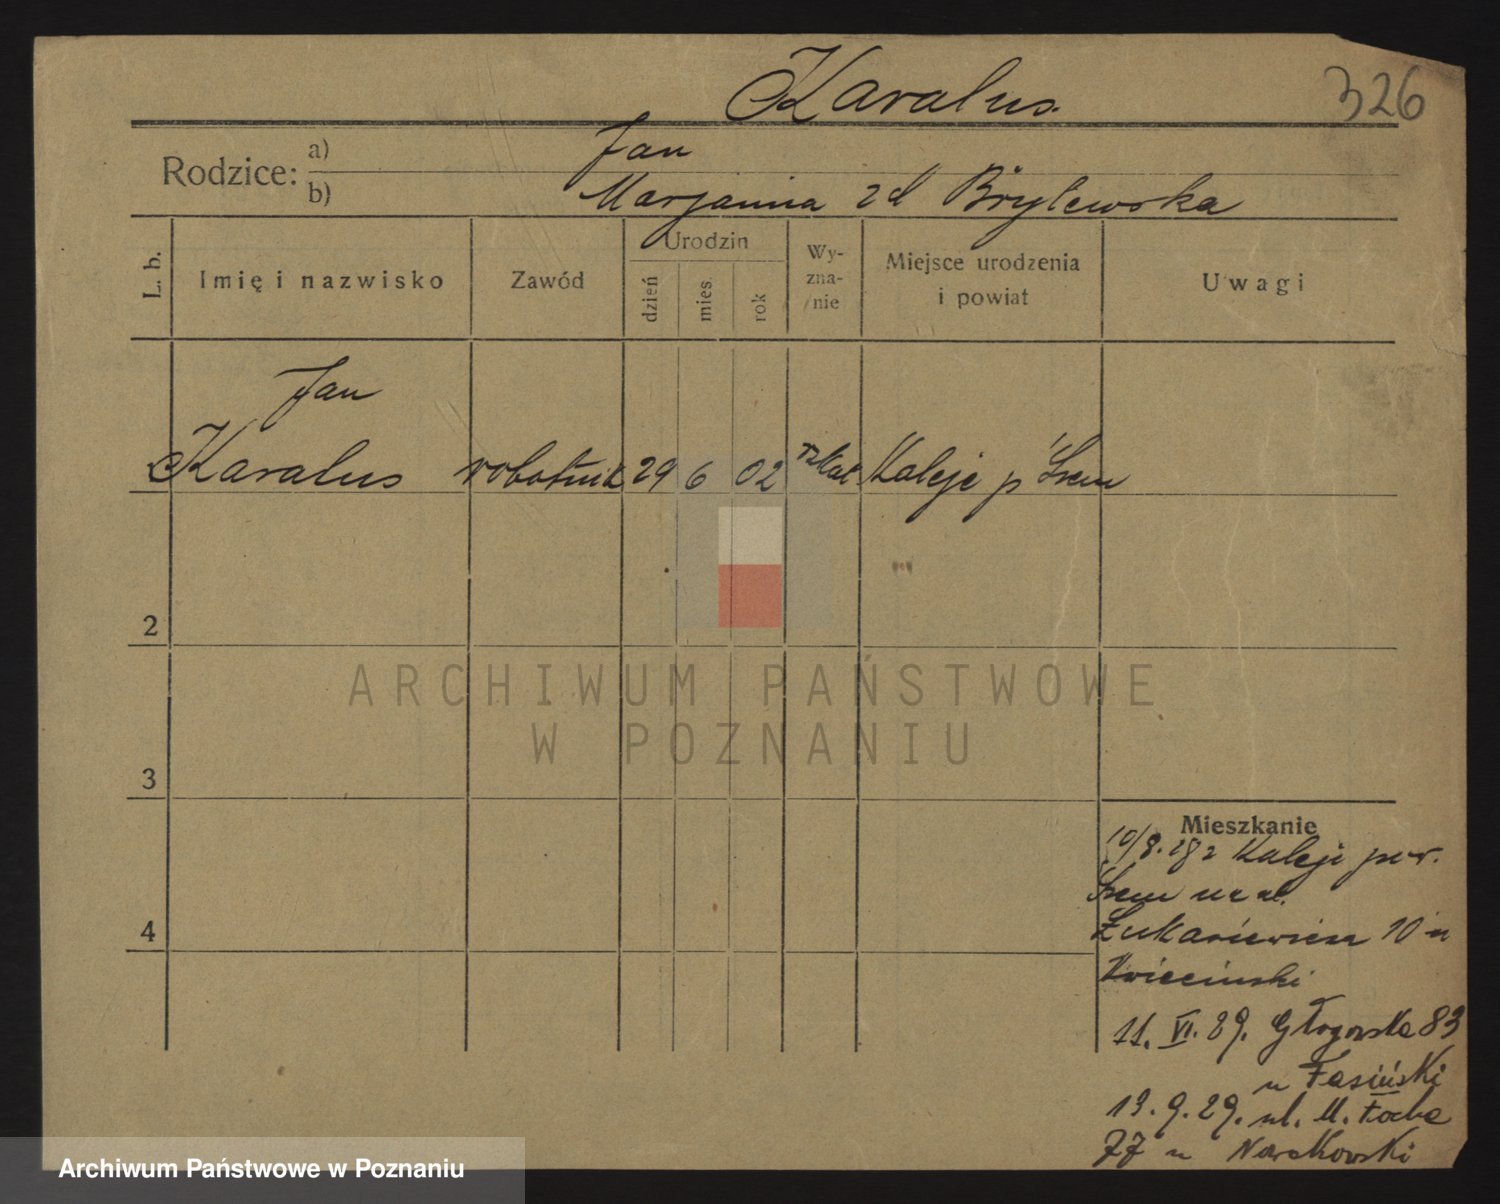 Karalus.
326
Rodzice: a) Jan
b) Marjanna zd Brylewska
L. b.
Imię i nazwisko
Zawód
Urodzin
dzień
mies.
rok
Wy-
zna-
nie
Miejsce urodzenia
i powiat
Uwagi
Jan
Karalus robotnik 29 6 02 rzkat Kaleje p Śrem
2
3
4
Mieszkanie
10/8. 28 z Kaleje pow.
Śrem na ul.
Łukasiewicza 10 u
Kwieciński
11. VI. 29. Głogowska 83
u Fasiński
13. 9. 29. ul. M. Focha
77 u Nowakowski
ARCHIWUM PAŃSTWOWE
W POZNANIU
Archiwum Państwowe w Poznaniu